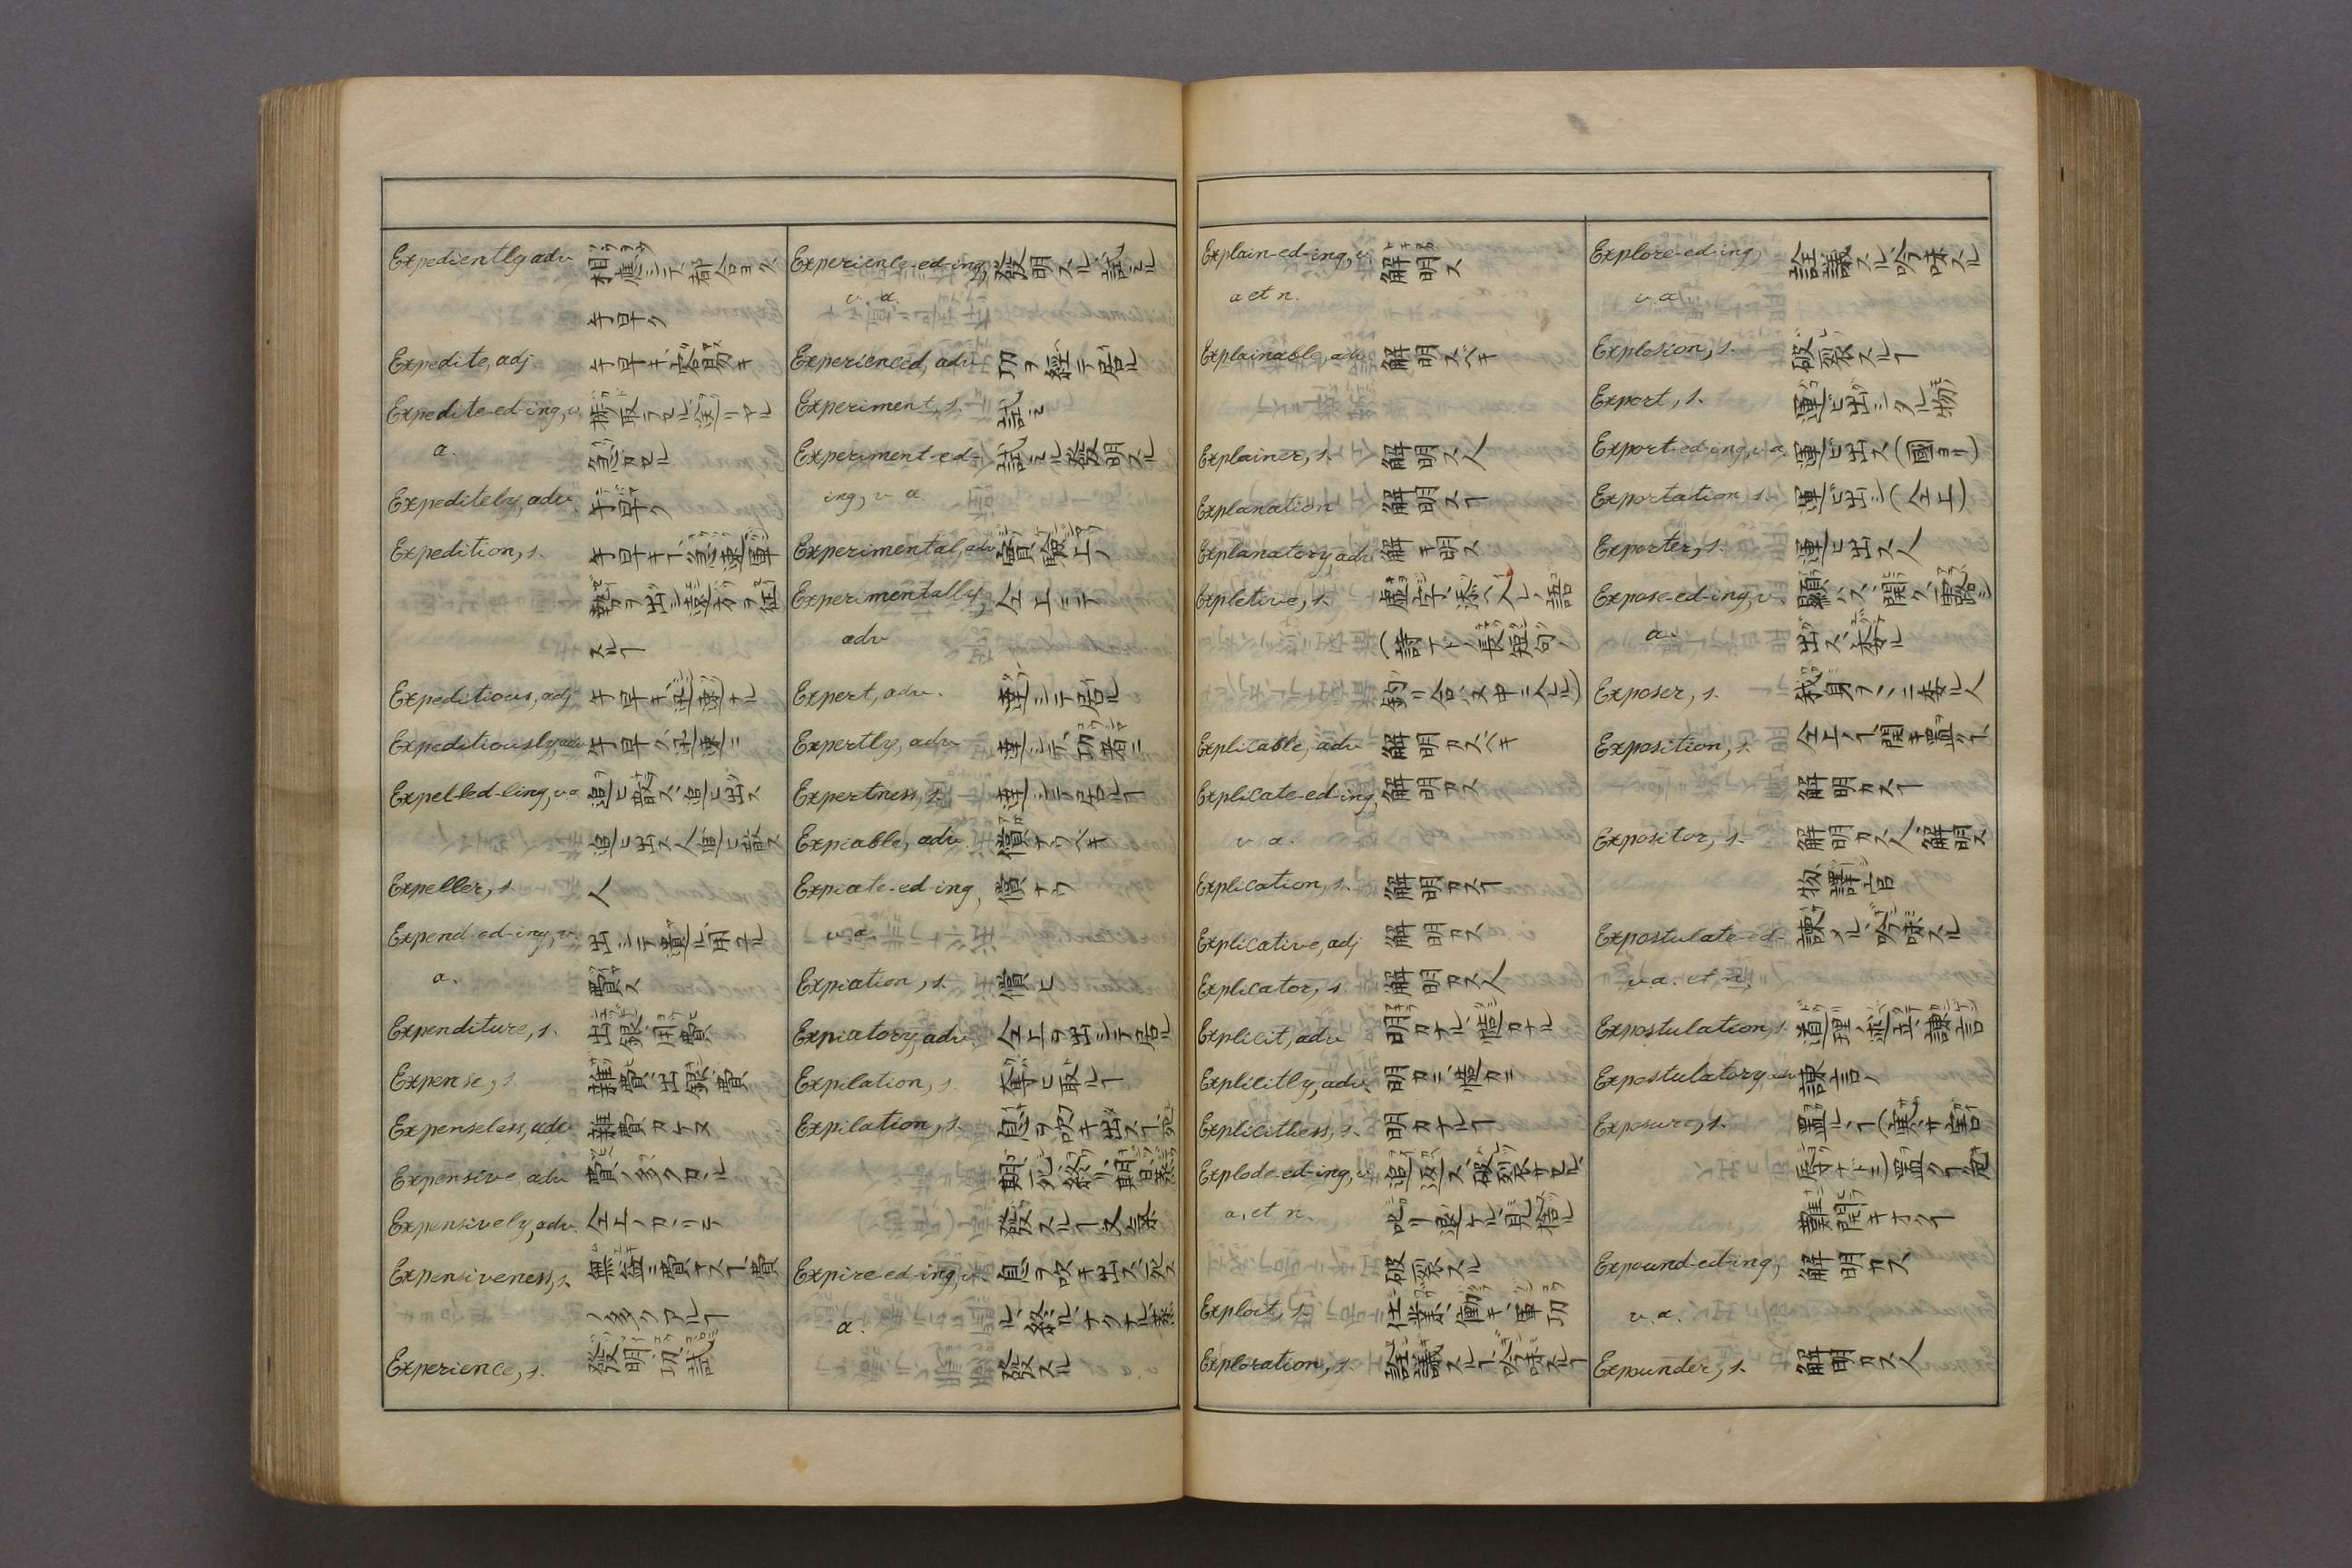 Expediently adv 相應シテ、都合ヨク、
手早ク
Expedite, adj. 手早キ、容易キ
Expedite-ed-ing, v. 捗取ラセル、深リマル
a. 急カセル
Expeditely, adv. 手早ク
Expedition, s. 手早キヿ、急速、軍
勢ヲ出シ遠方ヲ征
スルヿ
Expeditious, adj 手早キ、迅速ナル
Expeditiously, adv 手早ク、迅速ニ
Expel-led-ling, v a 追ヒ散ス、追ヒ出ス
追ヒ出ス人、追ヒ散ス
Expeller, s. 人
Expend-ed-ing, v. 出シテ遣ル、用ヰル
a. 費ス
Expenditure, s. 出銀、用費
Expense, s. 雜費、出銀、費
Expenseless, adv 雜費カケヌ
Expensive, adv 費ノ多クカヽル
Expensively, adv. 仝上ノカヽリテ
Expensiveness, s. 無益ニ費マスヿ、費
ノ多クアルヿ
Experience, s. 發明、功、試
Experience-ed-ing, 發明スル、試ミル
v. a.
Experienced, adv 功ヲ經テ居ル
Experiment, s. 試ミ
Experiment-ed- 試ミル、發明スル
ing, v a
Experimental, adv 實驗上ノ
Experimentally, 仝上ニテ
adv
Expert, adv. 達シテ居ル
Expertly, adv 達シテ、功者ニ
Expertness, s. 達シテ居ルヿ
Expiable, adv. 償ナウベキ
Expiate-ed-ing, 償ナウ
v. a.
Expiation, s. 償ヒ
Expiatory, adv 仝上ヲ出シテ居ル
Expilation, s. 奪ヒ取ルヿ
Expilation, s. 息ヲ吹キ出スヿ、定
期、死、終リ、期日、蒸
發スルヿ、又氣
Expire-ed-ing, v. 息ヲ吹キ出ス、死ス
a. ル、終ル、ナクナル、蒸
發スル
Explain-ed-ing, v. 解明ス
a et n.
Explainable, adv 解明スベキ
Explainer, s. 解明ス人
Explanation 解明スヿ
Explanatory, adv 解キ明ス
Expletive, s. 虚字、添ヘ入レノ語
(詩ナドノ長短句ノ
釣リ合ハヌ中ニ入ル)
Explicable, adv 解明カスベキ
Explicate-ed-ing, 解明カス
v a.
Explication, s. 解明カスヿ
Explicative, adj 解明カス
Explicator, s. 解明カス人
Explicit, adv 明カナル、慥カナル
Explicitly, adv. 明カニ、慥カニ
Explicitless, s. 明カナルヿ
Explode-ed-ing, v. 追返ス、破裂サセル、
a, et n. 叱リ退ケル、見捨ル
破裂スル
Exploit, s. 仕業、働キ、軍功
Exploration, s. 詮議スルヿ、吟味スルヿ
Explore-ed-ing, 詮議スル、吟味スル
v. a.
Explosion, s. 破裂スルヿ
Export, s. 運ヒ出シタル物
Export-ed-ing, v a. 運ビ出ス(國ヨリ)
Exportation s. 運ビ出シ(仝上)
Exporter, s. 運ヒ出ス人
Expose-ed-ing, v. 顯ハス、開ク、寠路シ
a. 出ス、委ル
Exposer, s. 我身ヲヽニ委ル人
Exposition, s. 仝上ノヿ、開キ置クヿ、
解明カスヿ
Expositor, s. 解明カス人、解明ス
物、譯官
Expostulate-ed- 諫メル、吟味スル
v. a. et n.
Expostulation, s. 道理ノ述立、諫言
Expostulatory, adv 諫言ノ
Exposure, s. 置ルヽヿ(寒サ害
辱ナドニ)置クヿ、危
難、開キオクヿ
Expound-ed-ing, 解明カス
v. a.
Expounder, s. 解明カス人